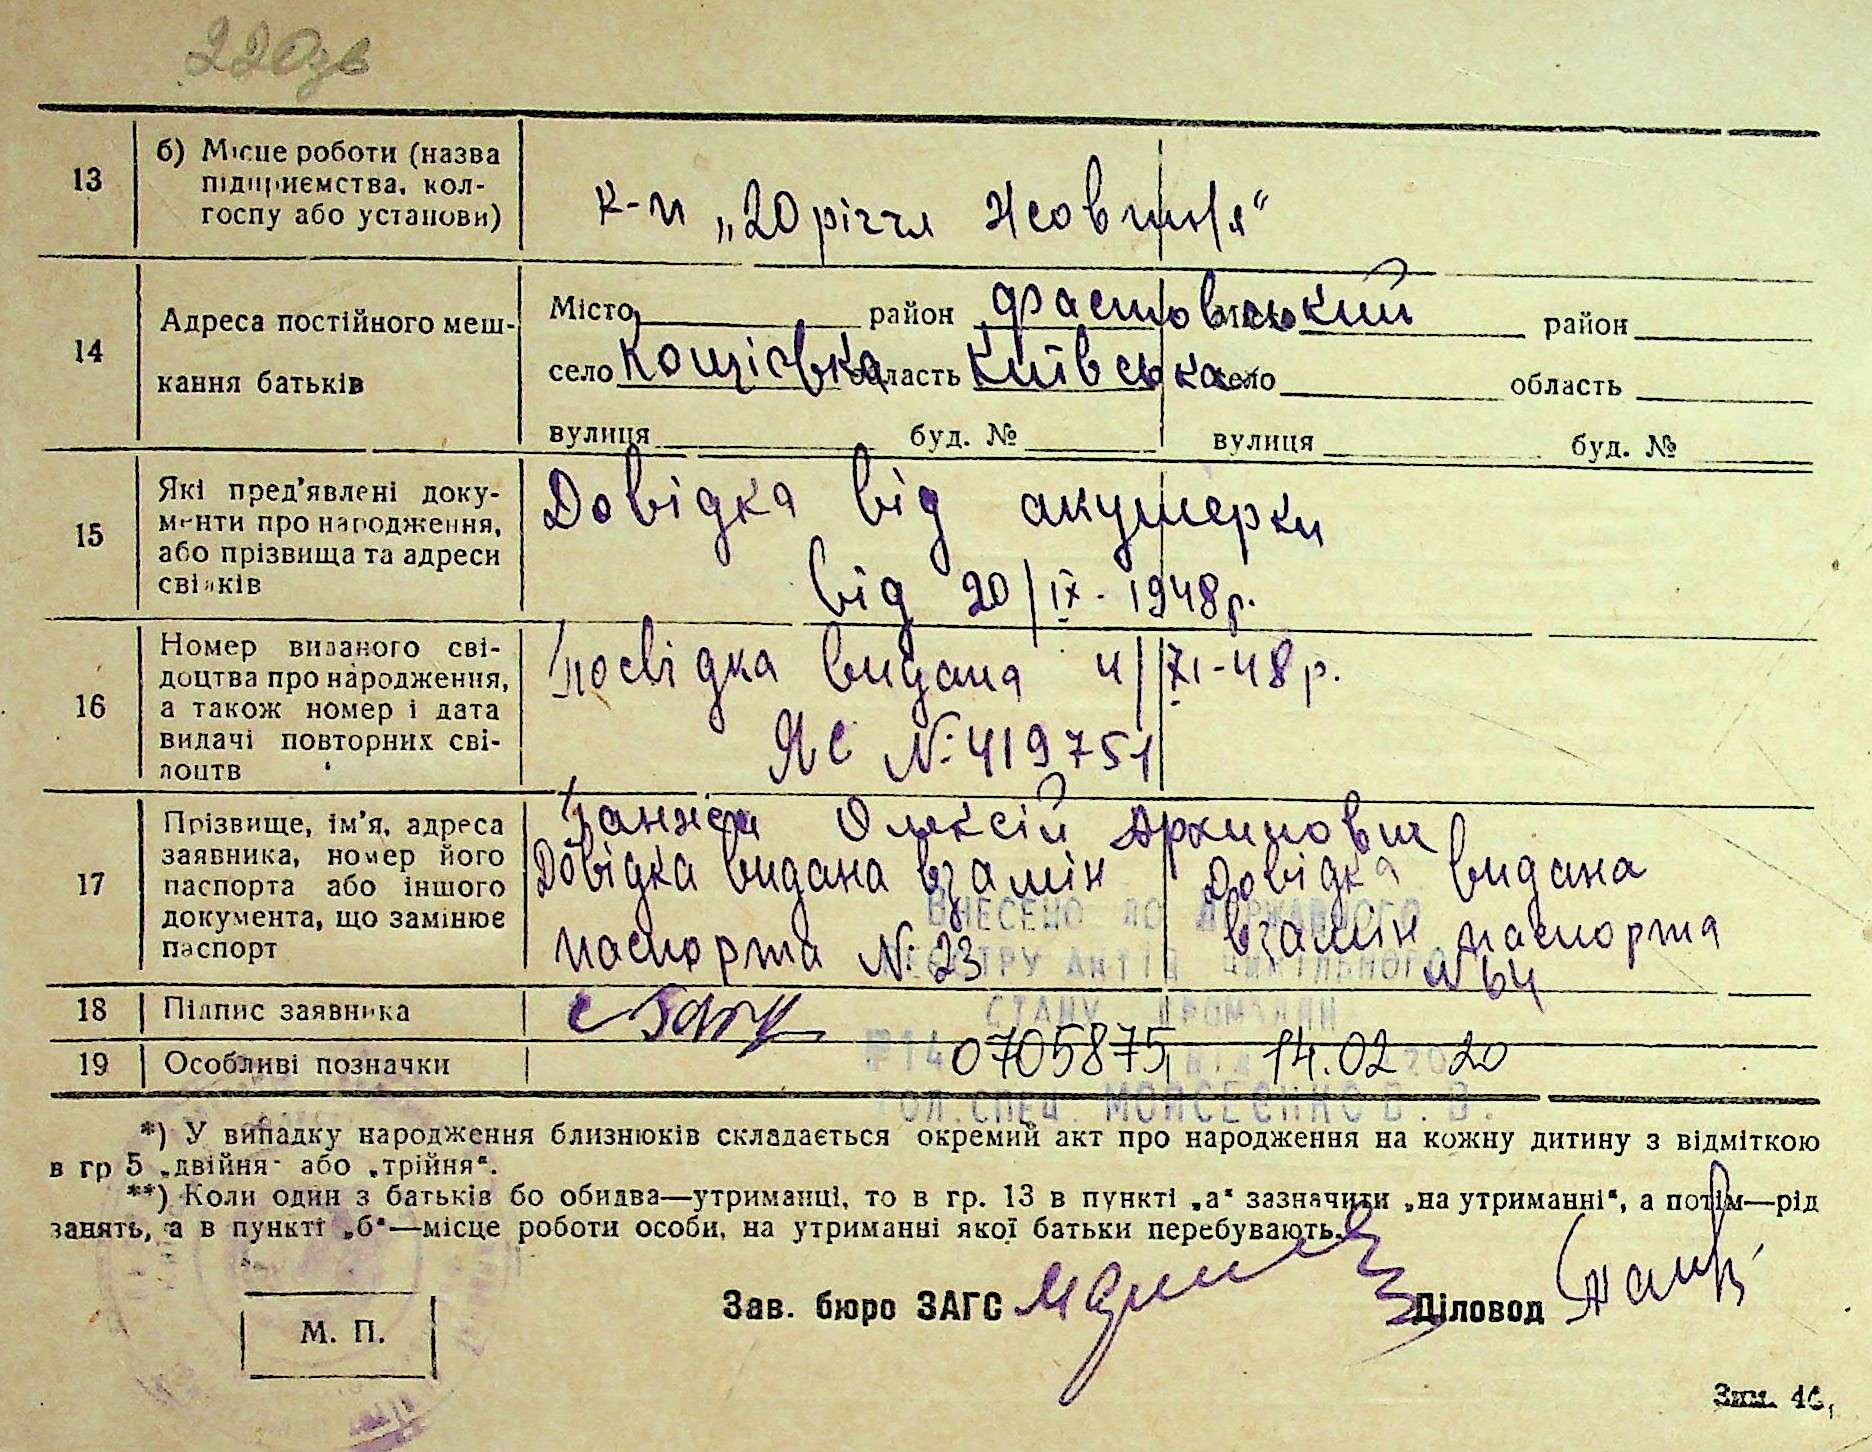 220зв
13
б) Місце роботи (назва
підприємства, кол-
госпу або установи)
к-п „20 річчя Жовтня“
14
Адреса постійного меш-
кання батьків
Місто район Фастовський район
село Кощіївка область Київська село область
вулиця буд. № вулиця буд. №
15
Які пред'явлені доку-
менти про народження,
або прізвища та адреси
свідків
Довідка від акушерки
від 20/ІХ-1948р.
16
Номер виданого сві-
доцтва про народження,
а також номер і дата
видачі повторних сві-
доцтв
Посвідка видана 4/ХІ-48р.
ЯС №419751
17
Прізвище, ім'я, адреса
заявника, номер його
паспорта або іншого
документа, що замінює
паспорт
Ганжа Олексій Архипович
Довідка видана взамін
паспорта № 23
Довідка видана
взамін паспорта
№ 64
ВНЕСЕНО ДО ДЕРЖАВНОГО
РЕЄСТРУ АКТІВ ЦИВІЛЬНОГО
СТАНУ ГРОМАДЯН
18
Підпис заявника
19
Особливі позначки
№14 0705875 від 14.02 2020
ГОЛ.СПЕЦ. МОЙСЕЄНКО В.В.
*) У випадку народження близнюків складається окремий акт про народження на кожну дитину з відміткою
в гр 5 „двійня“ або „трійня“.
**) Коли один з батьків бо обидва—утриманці, то в гр. 13 в пункті „а“ зазначити „на утриманні“, а потім—рід
занять, а в пункті „б“—місце роботи особи, на утриманні якої батьки перебувають.
Зав. бюро ЗАГС
Діловод
М. П.
Зам. 46,